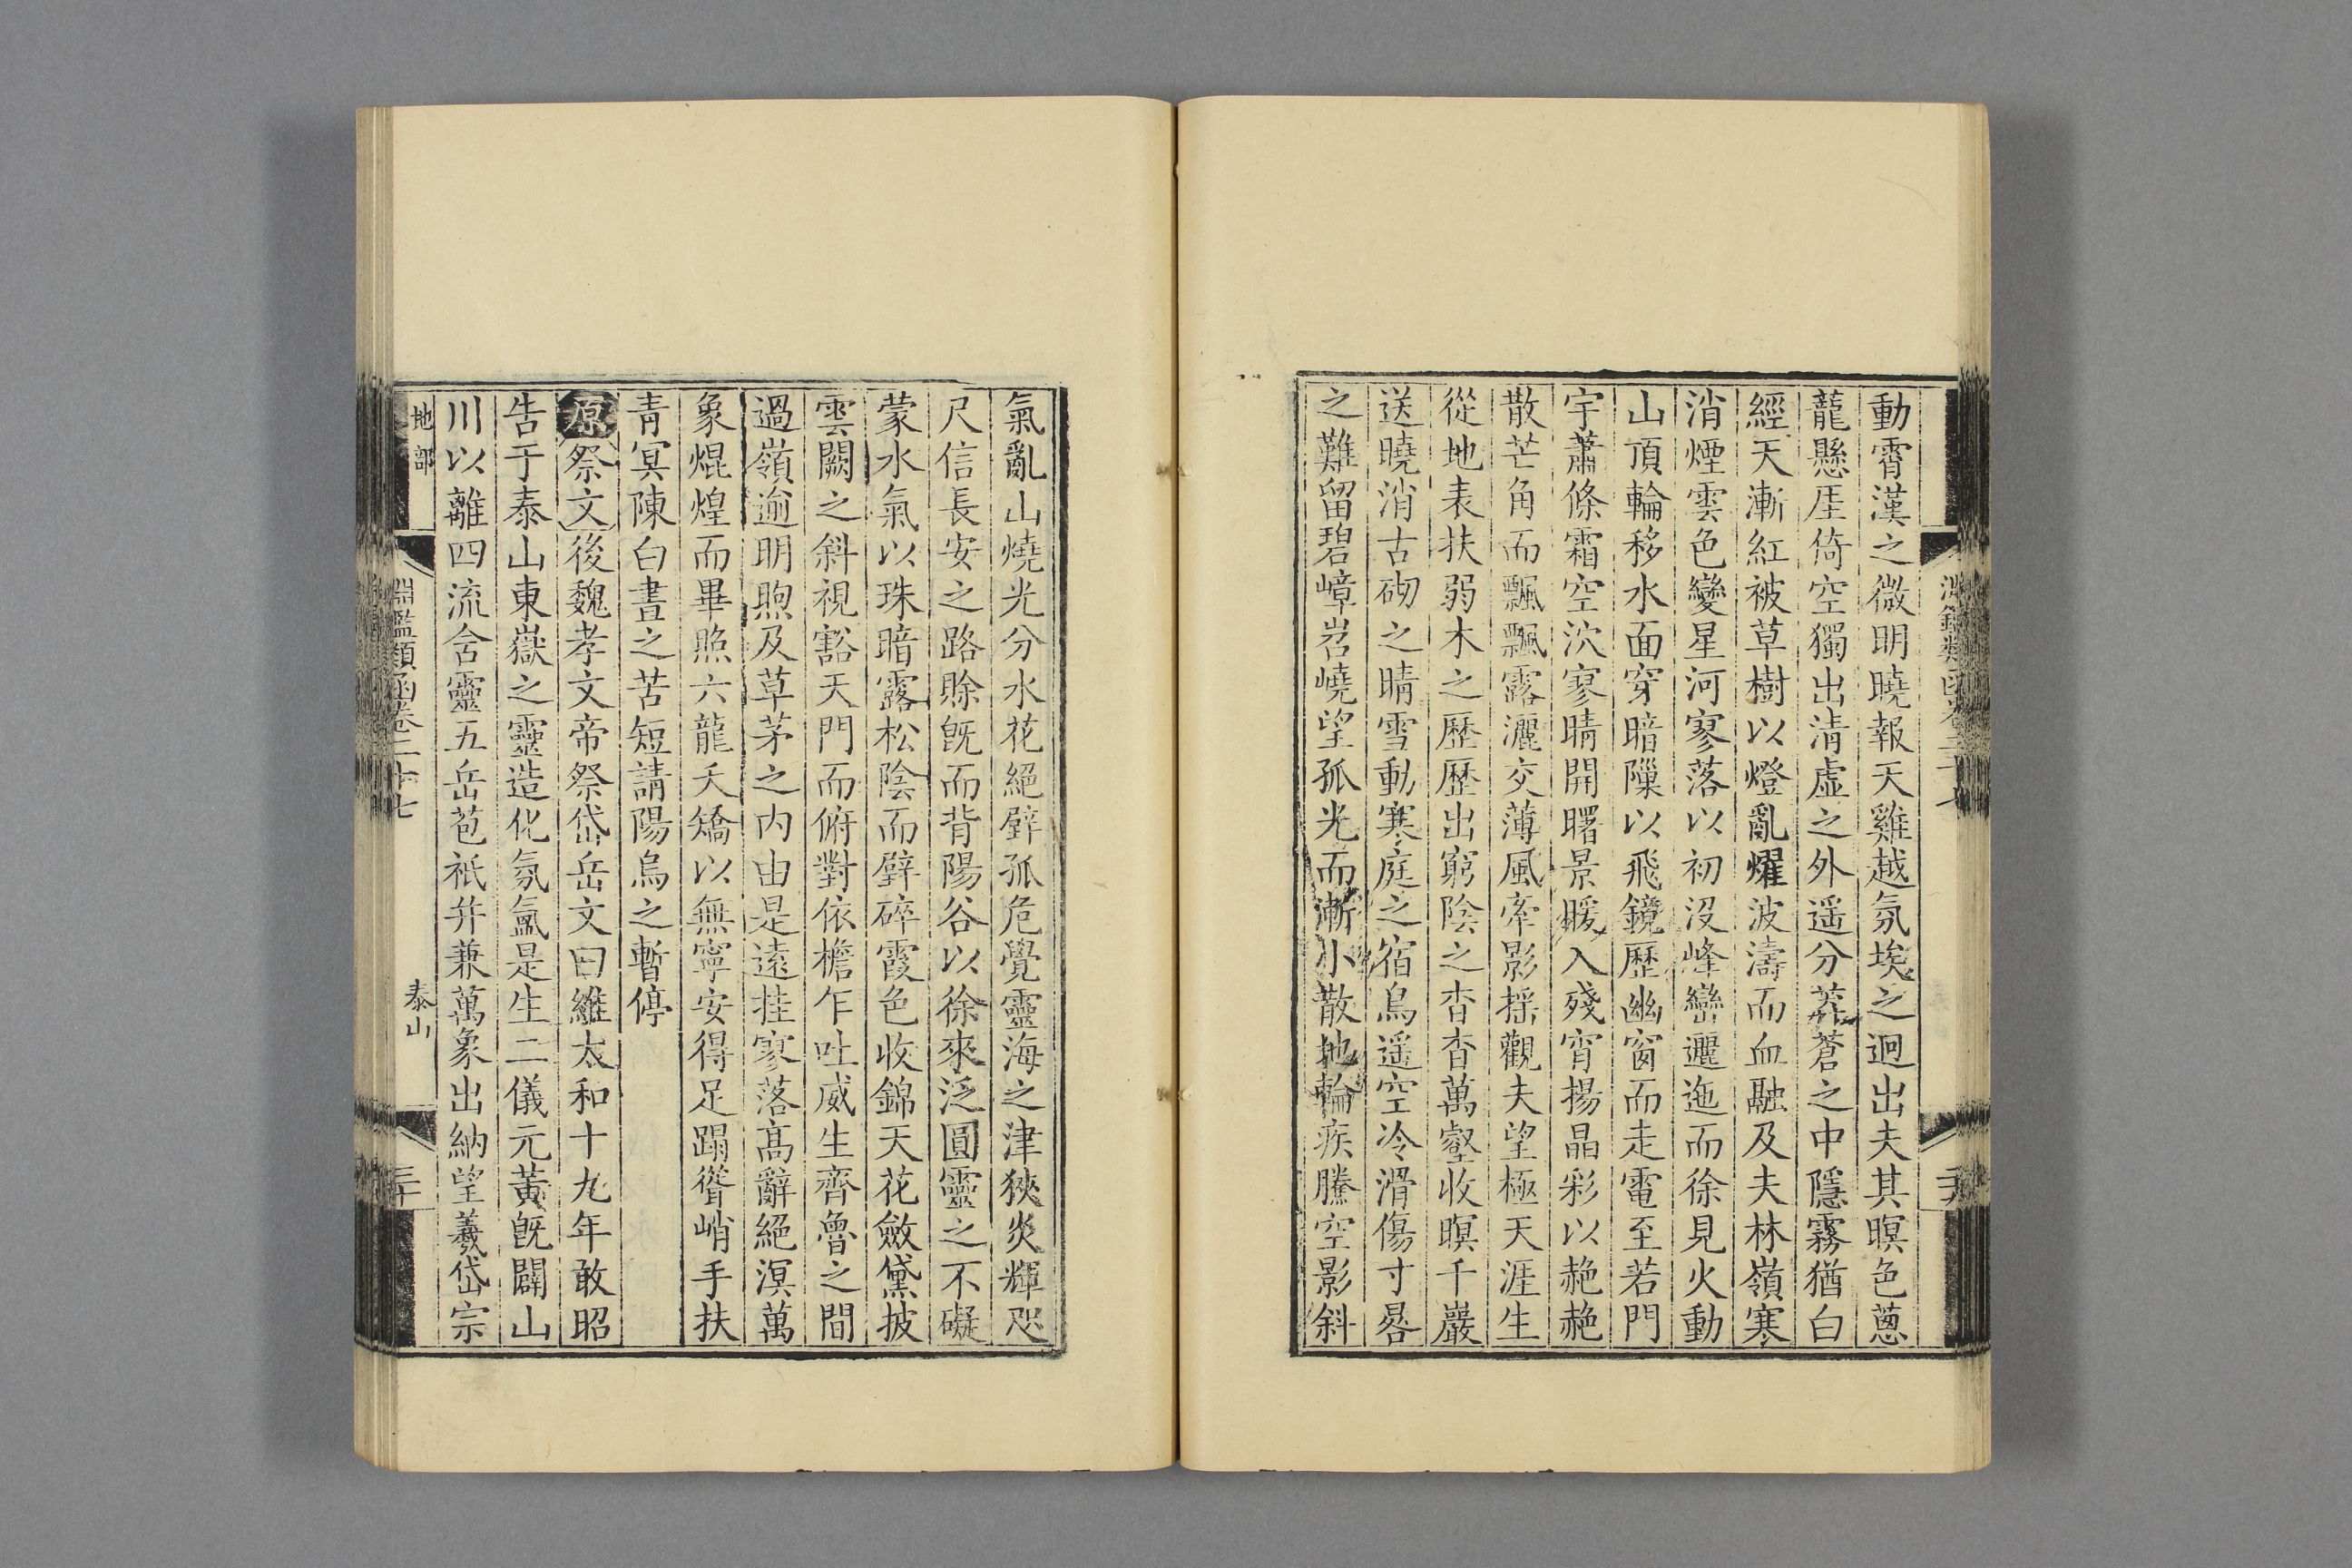 動霄漢之微明曉報天雞越氛埃之迥出夫其暝色蔥
蘢懸厓倚空獨出淸虛之外遥分莽蒼之中隱霧猶白
經天漸紅被草樹以燈亂燿波濤而血融及夫林嶺寒
消煙雲色變星河寥落以初沒峰巒邐迤而徐見火動
山頂輪移水面穿暗隟以飛鏡歷幽窗而走電至若門
宇蕭條霜空泬寥晴開曙景暖入殘宵揚晶彩以赩赩
散芒角而飄飄露灑交薄風牽影揺觀夫望極天涯生
從地表扶弱木之歷歷出窮陰之杳杳萬壑收暝千巖
送曉消古砌之晴雪動寒庭之宿鳥遥空冷滑傷寸晷
之難留碧嶂岧嶢望孤光而漸小散地輪疾騰空影斜
氣亂山燒光分水花絕壁孤危覺靈海之津狹炎輝咫
尺信長安之路賒旣而背陽谷以徐來泛圓靈之不礙
蒙水氣以珠暗露松陰而璧碎霞色收錦天花斂黛披
雲闕之斜視豁天門而俯對依檐乍吐威生齊魯之間
過嶺逾明煦及草茅之内由是遠挂寥落高辭絕溟萬
象焜煌而畢照六龍夭矯以無寧安得足蹋聳峭手扶
靑冥陳白晝之苦短請陽烏之暫停
原祭文後魏孝文帝祭岱岳文曰維太和十九年敢昭
告于泰山東嶽之靈造化氛氳是生二儀元黃旣闢山
川以離四流含靈五岳苞祇并兼萬象出納望羲岱宗
地部
淵鑑類函卷二十七
泰山
三十